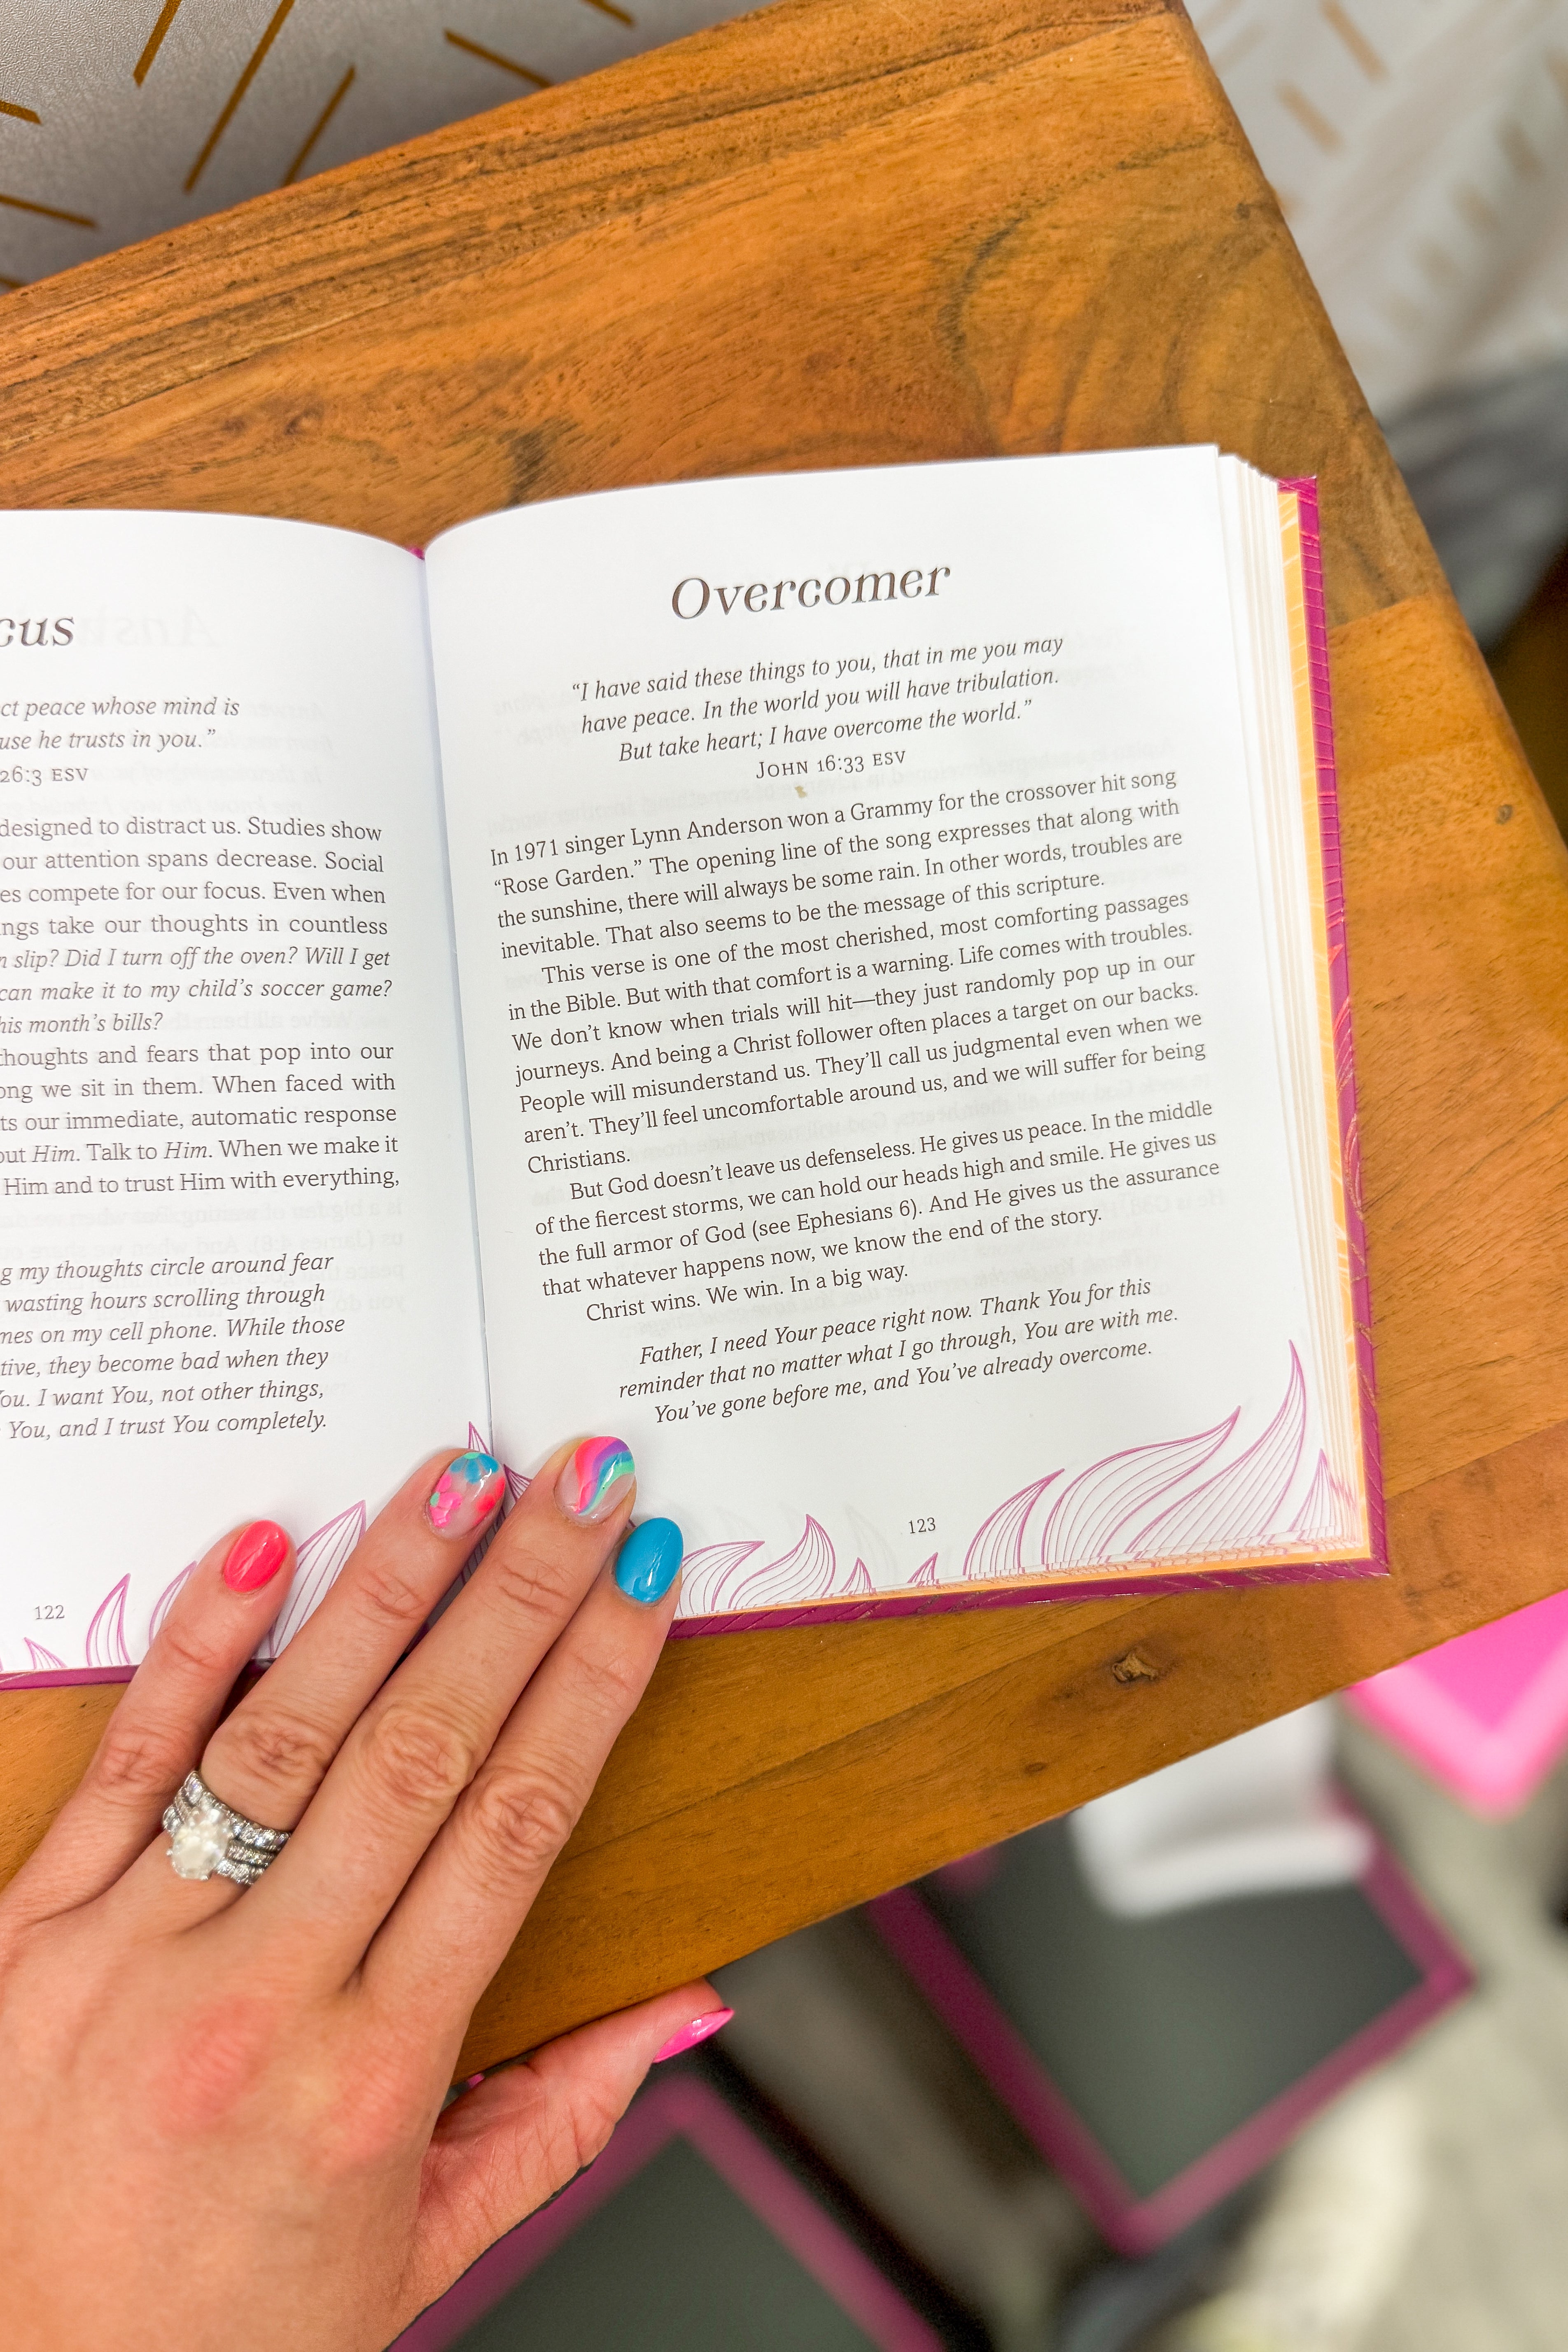 cus
ct peace whose mind is
use he trusts in you.”
26:3 ESV
designed to distract us. Studies show
our attention spans decrease. Social
es compete for our focus. Even when
ngs take our thoughts in countless
n slip? Did I turn off the oven? Will I get
can make it to my child’s soccer game?
his month’s bills?
thoughts and fears that pop into our
ong we sit in them. When faced with
ts our immediate, automatic response
out Him. Talk to Him. When we make it
Him and to trust Him with everything,
g my thoughts circle around fear
wasting hours scrolling through
mes on my cell phone. While those
tive, they become bad when they
You. I want You, not other things,
You, and I trust You completely.
122
Overcomer
“I have said these things to you, that in me you may
have peace. In the world you will have tribulation.
But take heart; I have overcome the world.”
JOHN 16:33 ESV
In 1971 singer Lynn Anderson won a Grammy for the crossover hit song
“Rose Garden.” The opening line of the song expresses that along with
the sunshine, there will always be some rain. In other words, troubles are
inevitable. That also seems to be the message of this scripture.
This verse is one of the most cherished, most comforting passages
in the Bible. But with that comfort is a warning. Life comes with troubles.
We don’t know when trials will hit—they just randomly pop up in our
journeys. And being a Christ follower often places a target on our backs.
People will misunderstand us. They’ll call us judgmental even when we
aren’t. They’ll feel uncomfortable around us, and we will suffer for being
Christians.
But God doesn’t leave us defenseless. He gives us peace. In the middle
of the fiercest storms, we can hold our heads high and smile. He gives us
the full armor of God (see Ephesians 6). And He gives us the assurance
that whatever happens now, we know the end of the story.
Christ wins. We win. In a big way.
Father, I need Your peace right now. Thank You for this
reminder that no matter what I go through, You are with me.
You’ve gone before me, and You’ve already overcome.
123